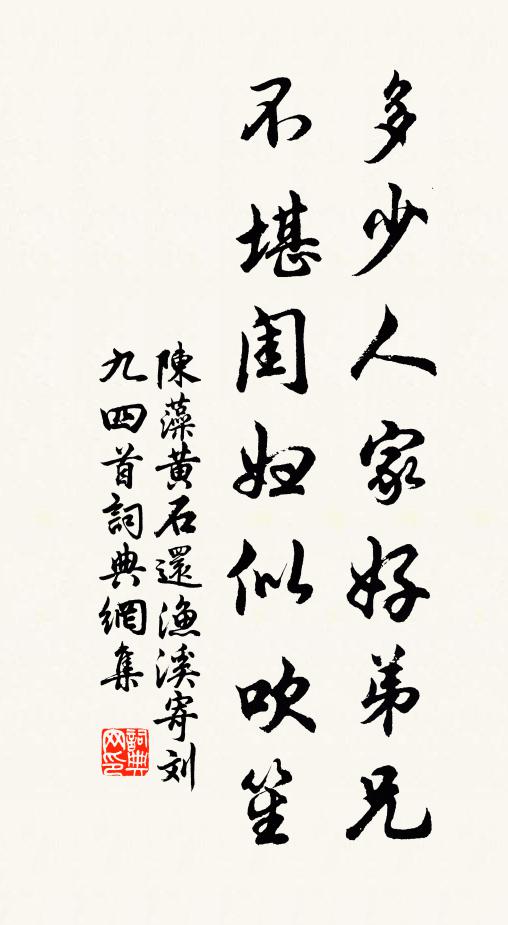 多少人家好弟兄
不堪閨妇似吹笙
陳藻黄石還漁溪寄刘
九四首詞典網集
詞典
网印